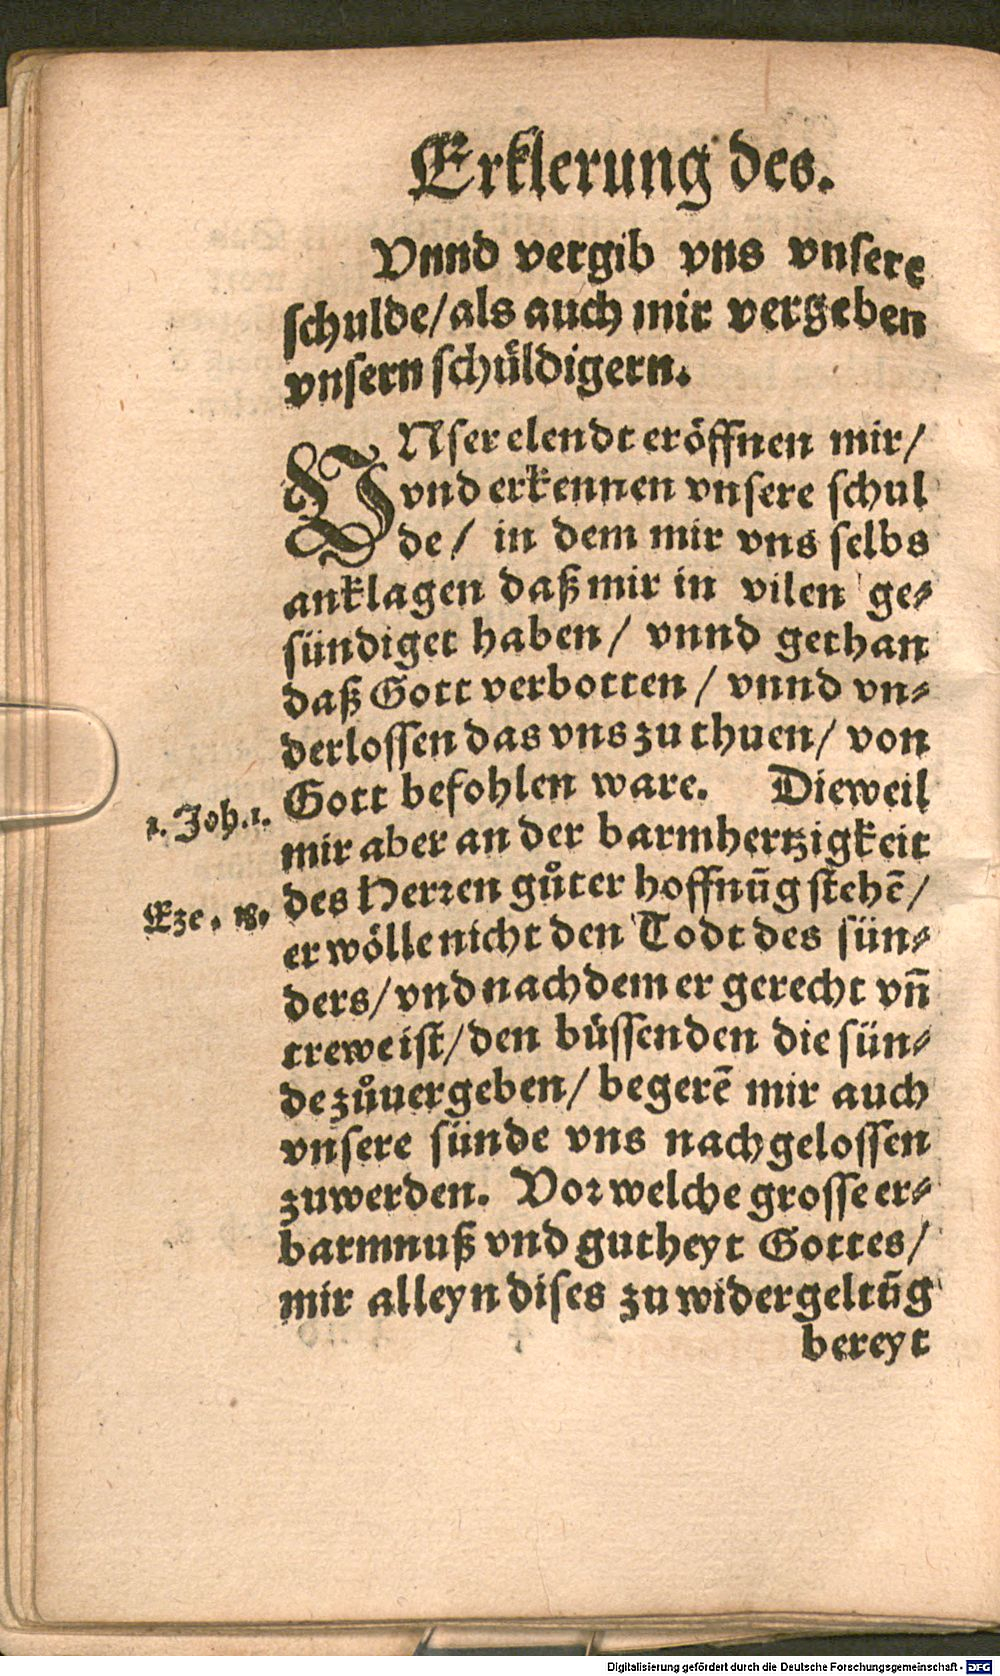 Erklerung des.
Vnnd vergib vns vnsere
schulde/als auch mir vergeben
vnsern schüldigern.
VNser elendt eröffnen mir/
vnd erkennen vnsere schul
de/ in dem mir vns selbs
anklagen daß mir in vilen ge⸗
sündiget haben/ vnnd gethan
daß Gott verbotten/ vnnd vn⸗
derlossen das vns zu thuen/ von
Gott befohlen ware. Dieweil
1. Joh.1.
mir aber an der barmhertzigkeit
des Herren gůter hoffnūg stehē/
Eze. 18.
er wölle nicht den Todt des sün⸗
ders/ vnd nach dem er gerecht vn̄
trewe ist/ den büssenden die sün⸗
de zůuergeben/ begerē mir auch
vnsere sünde vns nachgelossen
zuwerden. Vor welche grosse er⸗
barmnuß vnd gutheyt Gottes/
mir alleyn dises zu widergeltūg
bereyt
Digitalisierung gefördert durch die Deutsche Forschungsgemeinschaft - DFG